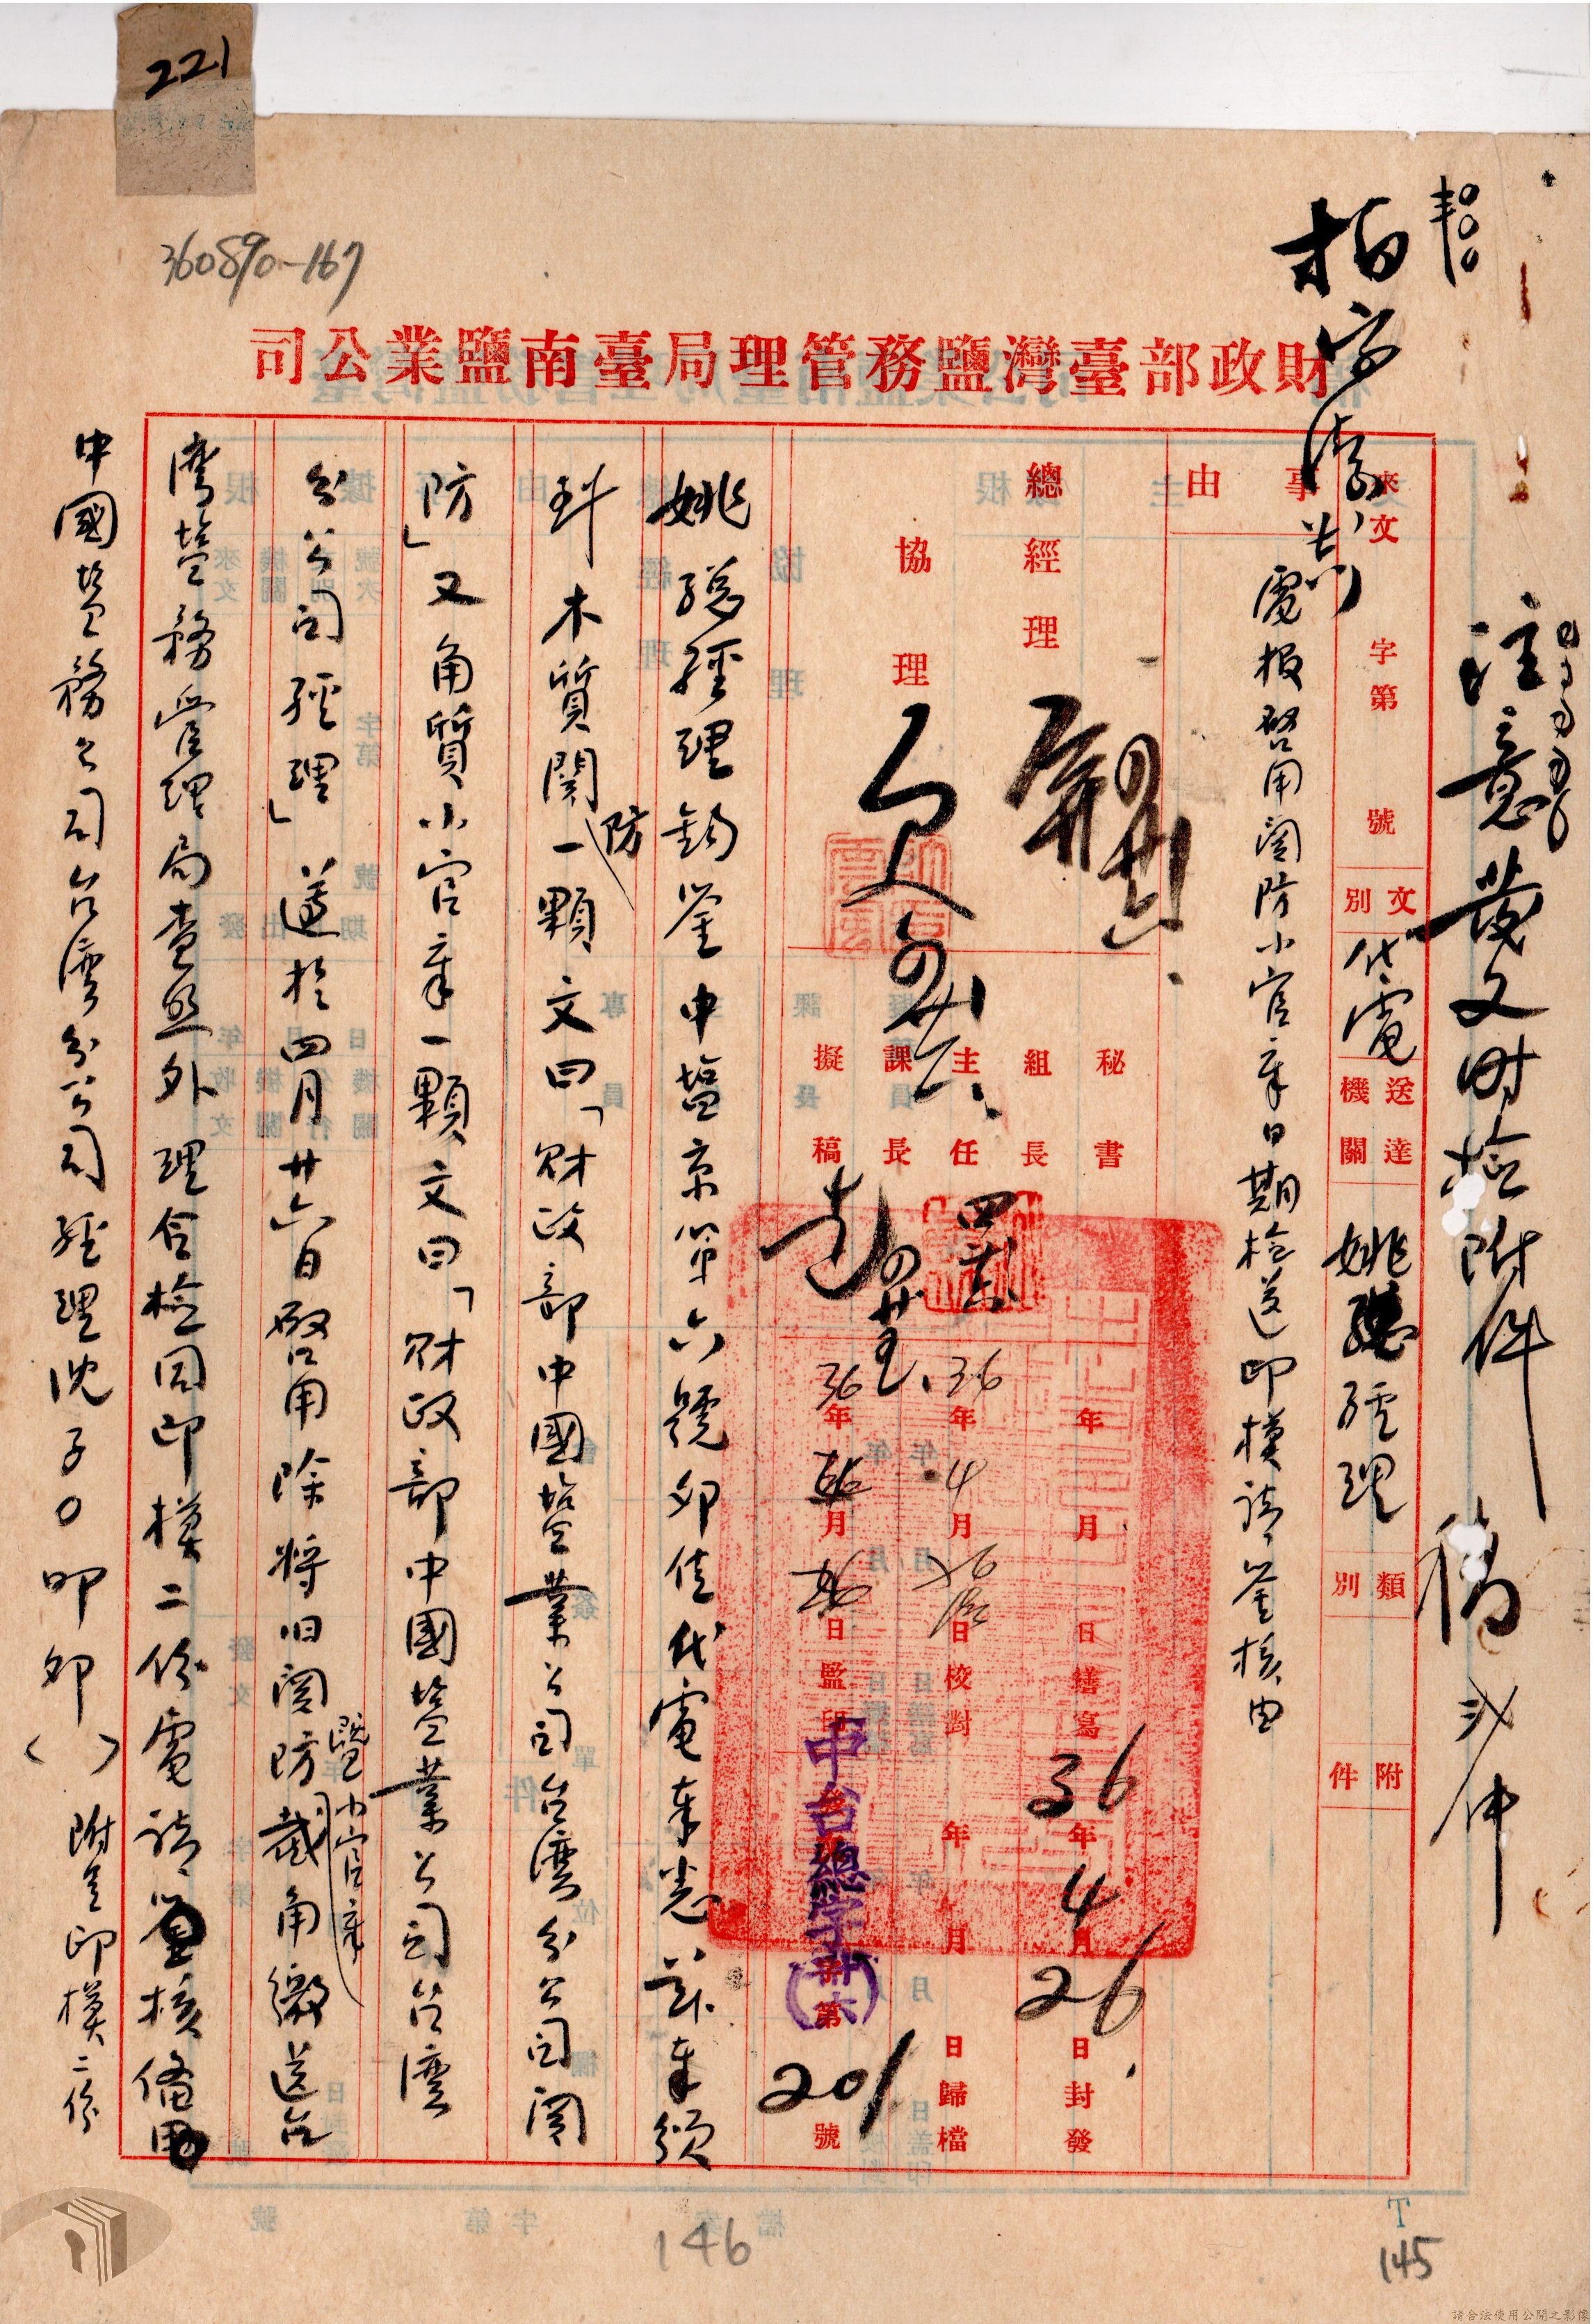 221
360890-167
財政部臺灣鹽務管理局臺南鹽業公司
注意發文時檢附件
稿
來文 字第 號
文別 代電
送達機關 姚總經理
類別
附件
事由
電報啓用關防小官章日期檢送印模請鑒核由
總經理
協理
秘書
組長
主任
課長
擬稿
年 月 日繕寫
36年4月26日校對
36年 月 日監印
36年4月26日封發
年 月 日歸檔
中台總字第201號
姚總經理鈞鑒中鹽京第六號卯佳代電奉悉茲奉頒
到木質關防一顆文曰「財政部中國鹽業公司台灣分公司關
防」又角質小官章一顆文曰「財政部中國鹽業公司台灣
分公司經理」遵於四月廿六日啓用除將旧關防暨小官章截角繳送台
灣鹽務管理局查照外理合檢同印模二份電請鑒核備
中國鹽務公司台灣分公司經理沈子〇叩卯( )附呈印模二份
146
145
請合法使用公開之影像